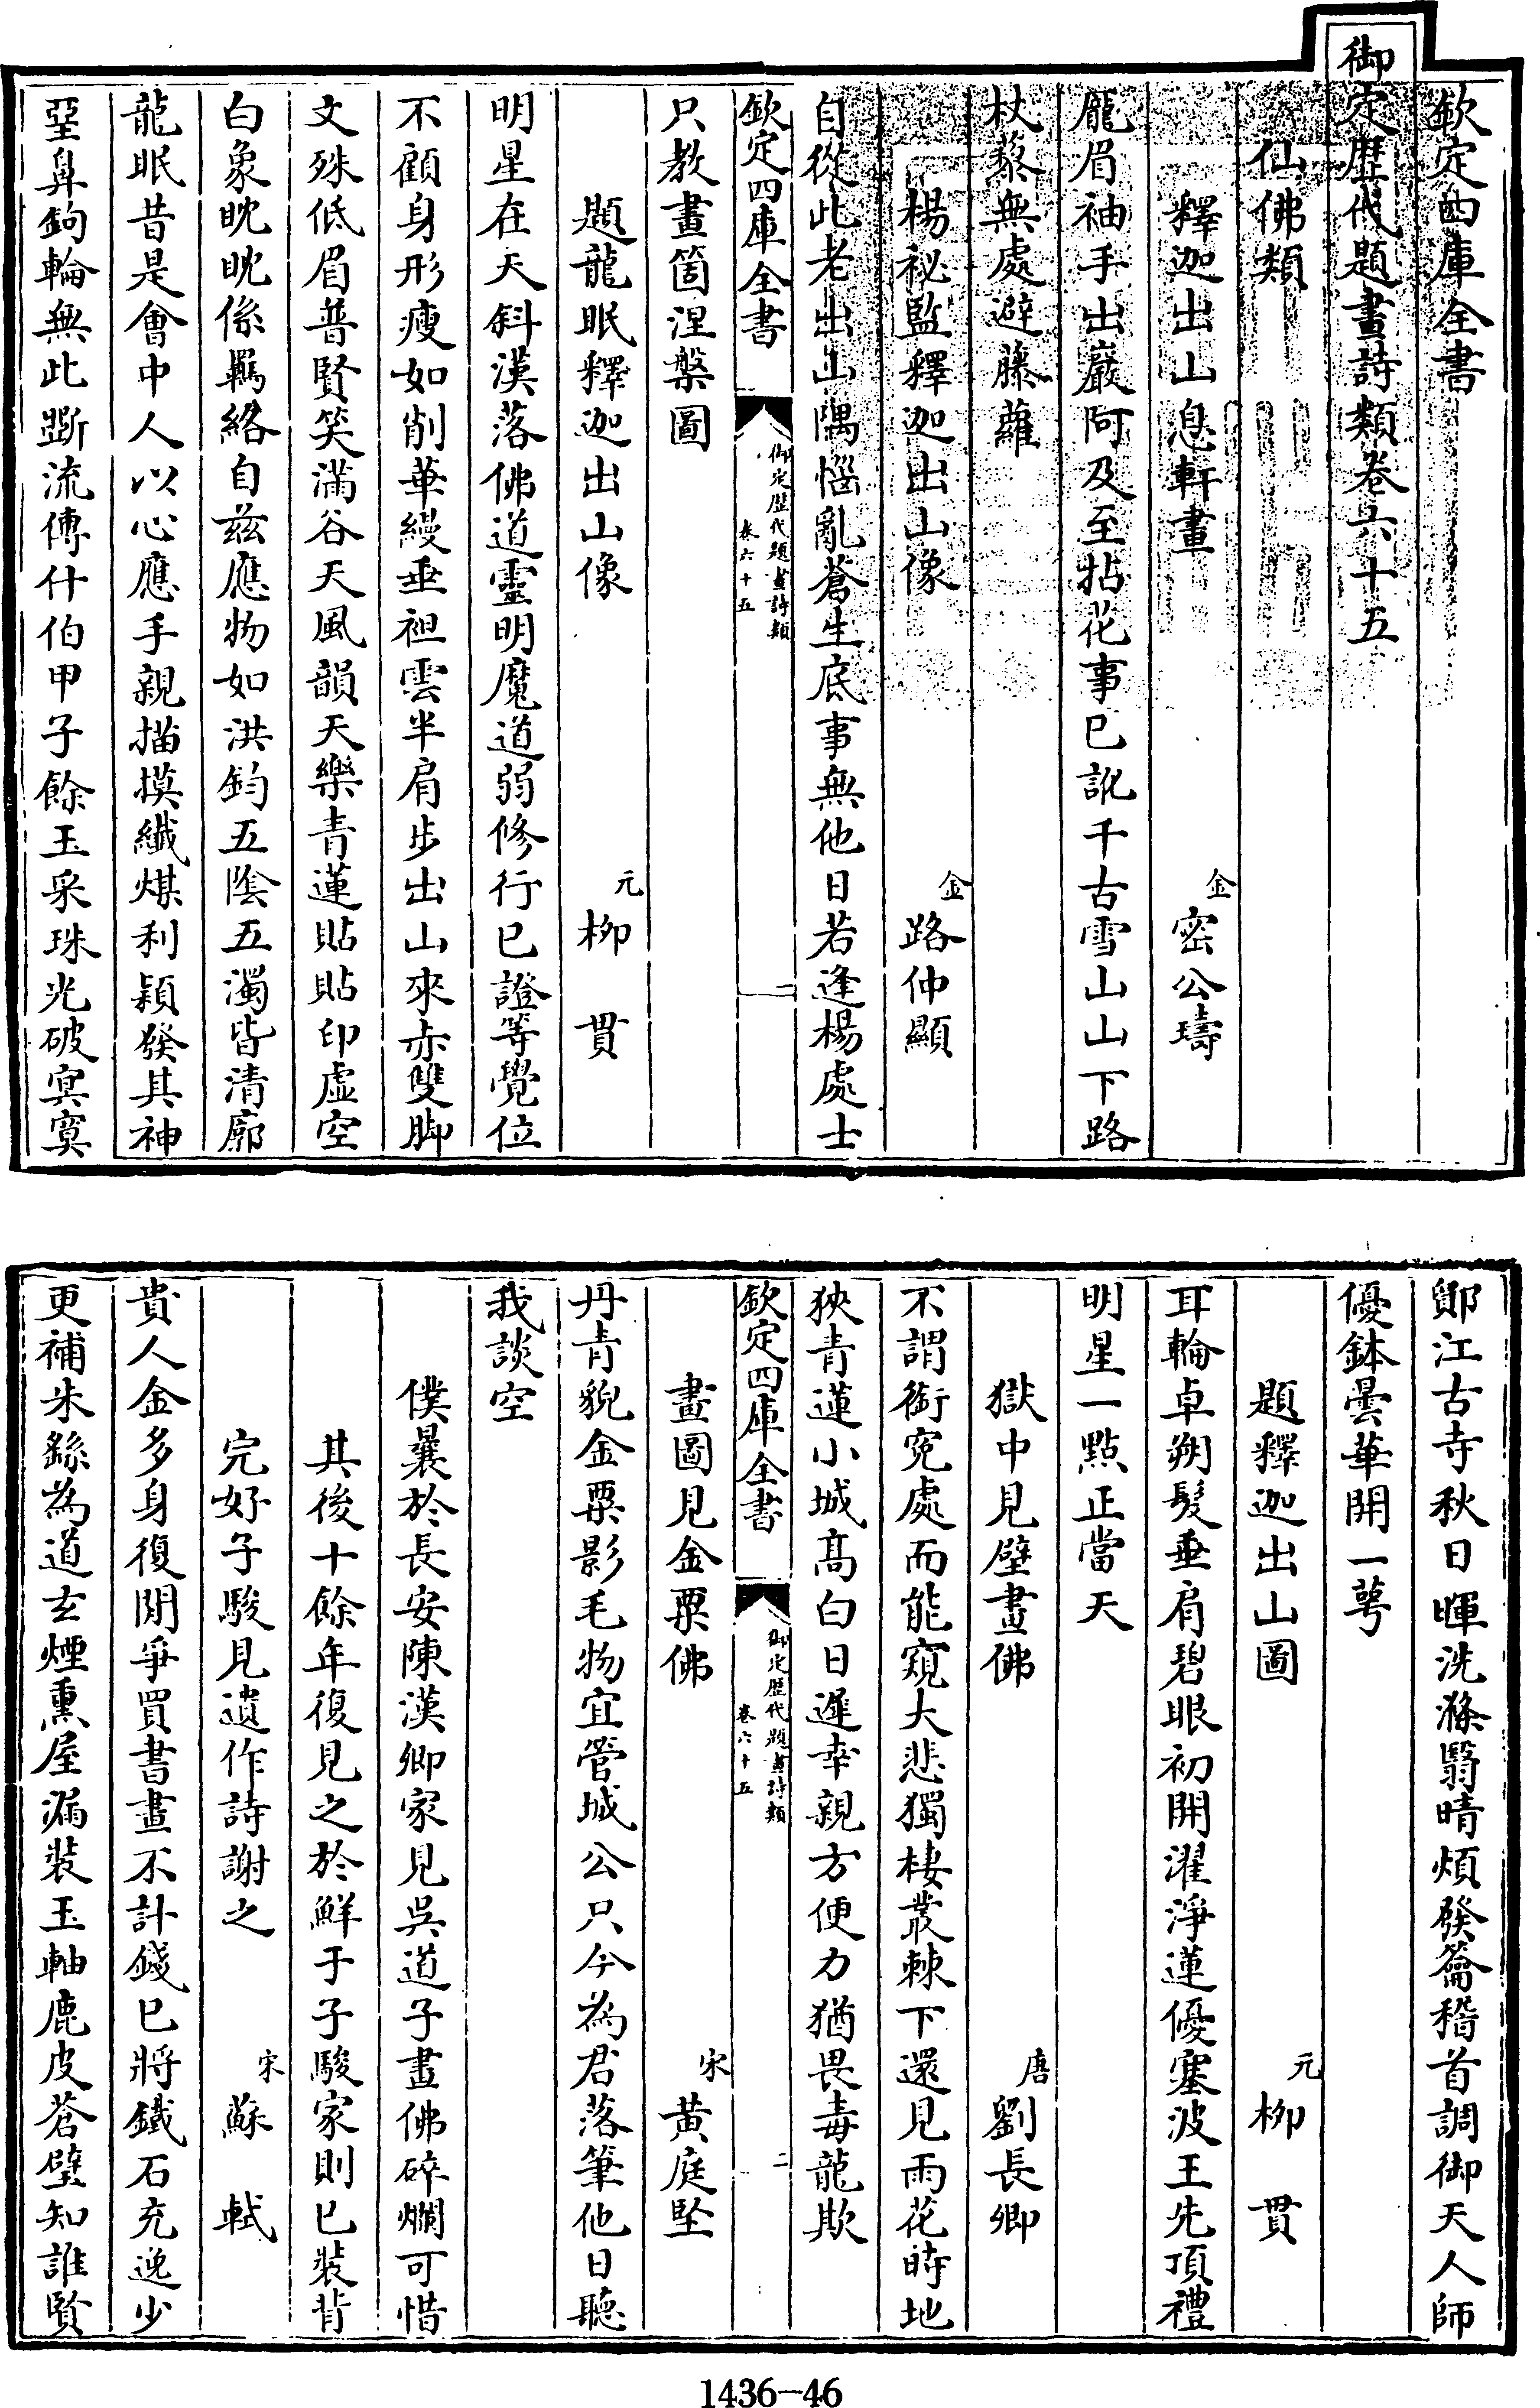 欽定四庫全書
御定歷代題畫詩類卷六十五
仙佛類
釋迦出山息軒畫
金
密公璹
龐眉袖手出巖阿及至拈花事已訛千古雪山山下路
杖藜無處避藤蘿
楊祕監釋迦出山像
金
路仲顯
自從此老出山隅惱亂蒼生底事無他日若逢楊處士
欽定四庫全書
御定歷代題畫詩類
卷六十五
一
只教畫箇涅槃圖
題龍眠釋迦出山像
元
柳貫
明星在天斜漢落佛道靈明魔道弱修行已證等覺位
不顧身形瘦如削華縵垂袒雲半肩步出山來赤雙脚
文殊低眉普賢笑滿谷天風韻天樂青蓮貼貼印虛空
白象眈眈係羈絡自兹應物如洪鈞五陰五濁皆清廓
龍眠昔是會中人以心應手親描摸纖煤利穎發其神
堊鼻鉤輪無此斲流傳什伯甲子餘玉采珠光破㝠寞
鄮江古寺秋日暉洗滌翳晴煩發籥稽首調御天人師
優鉢曇華開一萼
題釋迦出山圖
元
柳貫
耳輪卓朔髮垂肩碧眼初開濯淨蓮優塞波王先頂禮
明星一點正當天
獄中見壁畫佛
唐
劉長卿
不謂銜寃處而能窺大悲獨棲叢棘下還見雨花時地
狹青蓮小城髙白日遲幸親方便力猶畏毒龍欺
欽定四庫全書
御定歷代題畫詩類
卷六十五
二
畫圖見金粟佛
宋
黃庭堅
丹青貌金粟影毛物宜管城公只今為君落筆他日聽
我談空
僕曩於長安陳漢卿家見吳道子畫佛碎爛可惜
其後十餘年復見之於鮮于子駿家則已裝背
完好子駿見遺作詩謝之
宋
蘇軾
貴人金多身復閒爭買書畫不計錢已將鐵石充逸少
更補朱繇為道玄煙熏屋漏裝玉軸鹿皮蒼璧知誰賢
1436-46